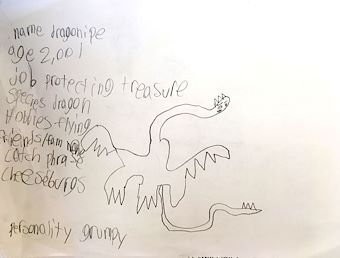 name dragonipe
age 2,001
job protecting treasure
species dragon
Hobbies flying
friends/fam none
catch phrase
cheeseburgs
personality grumpy